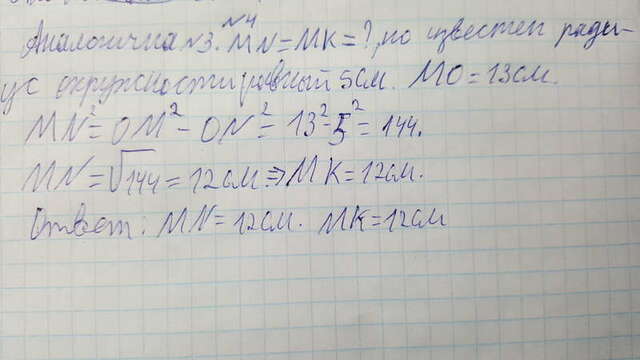 №4
Аналогична №3. MN=MK=?, но известен ради-
ус окружности равный 5см. MO=13см.
MN²=OM²-ON²=13²-5²=144.
MN=√144=12см⇒MK=12см.
Ответ: MN=12см. MK=12см